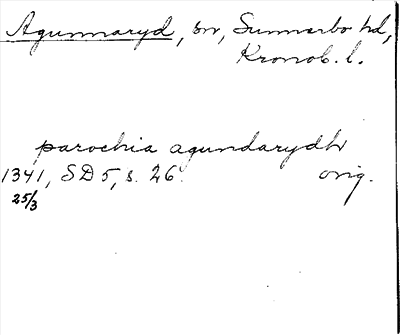 Agunnaryd, sn, Sunnerbo hd,
Kronob. l.
parochia agundarydh
1341, SD 5, s. 26. orig.
25/3